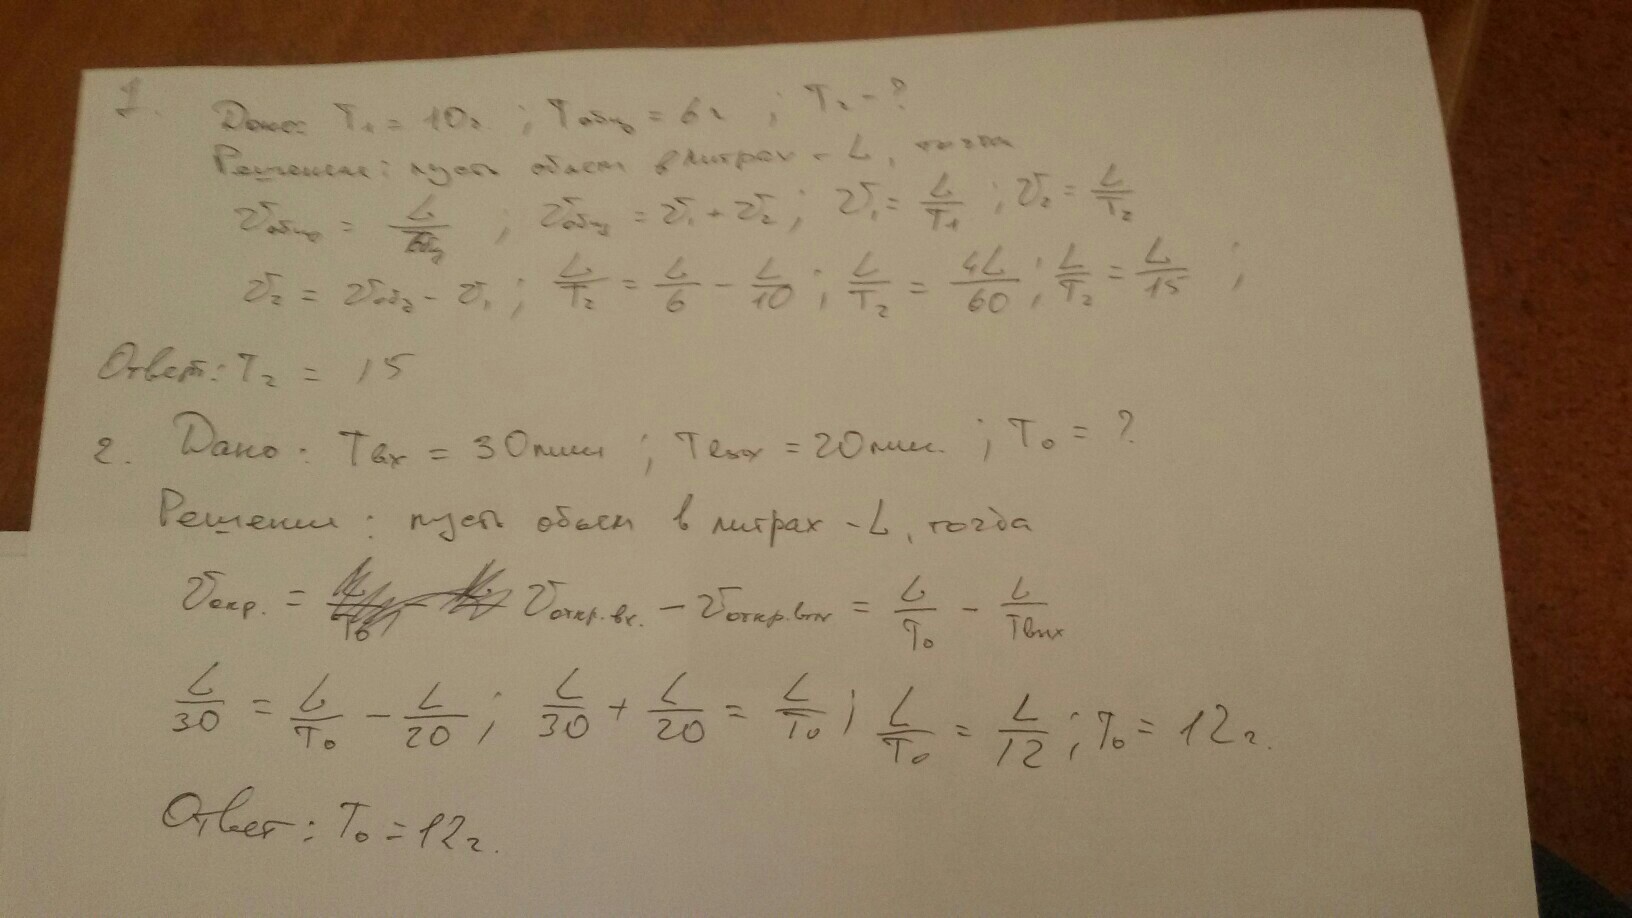 1. Дано: T₁ = 10г. ; Tобщ = 6г ; T₂ - ?
Решение: пусть объем в литрах - L, тогда
Vобщ = L/Tобщ ; Vобщ = V₁ + V₂ ; V₁ = L/T₁ ; V₂ = L/T₂
V₂ = Vобщ - V₁ ; L/T₂ = L/6 - L/10 ; L/T₂ = 4L/60 ; L/T₂ = L/15 ;
Ответ: T₂ = 15
2. Дано: Tвх = 30мин ; Tвых = 20мин. ; T₀ = ?
Решение: пусть объем в литрах - L, тогда
Vокр. = Vоткр.вх. - Vоткр.вых = L/T₀ - L/Tвых
L/30 = L/T₀ - L/20 ; L/30 + L/20 = L/T₀ ; L/T₀ = L/12 ; T₀ = 12г.
Ответ: T₀ = 12г.